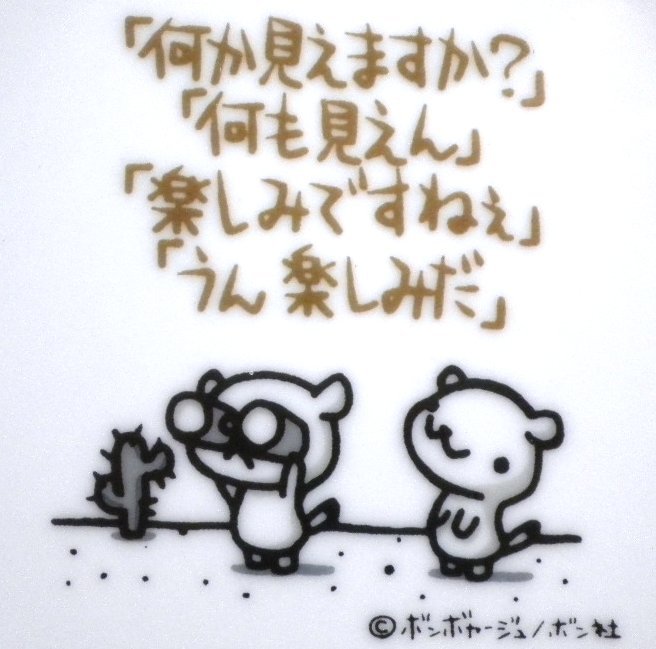 「何か見えますか?」
「何も見えん」
「楽しみですねぇ」
「うん 楽しみだ」
©ボンボヤージュ/ボン社